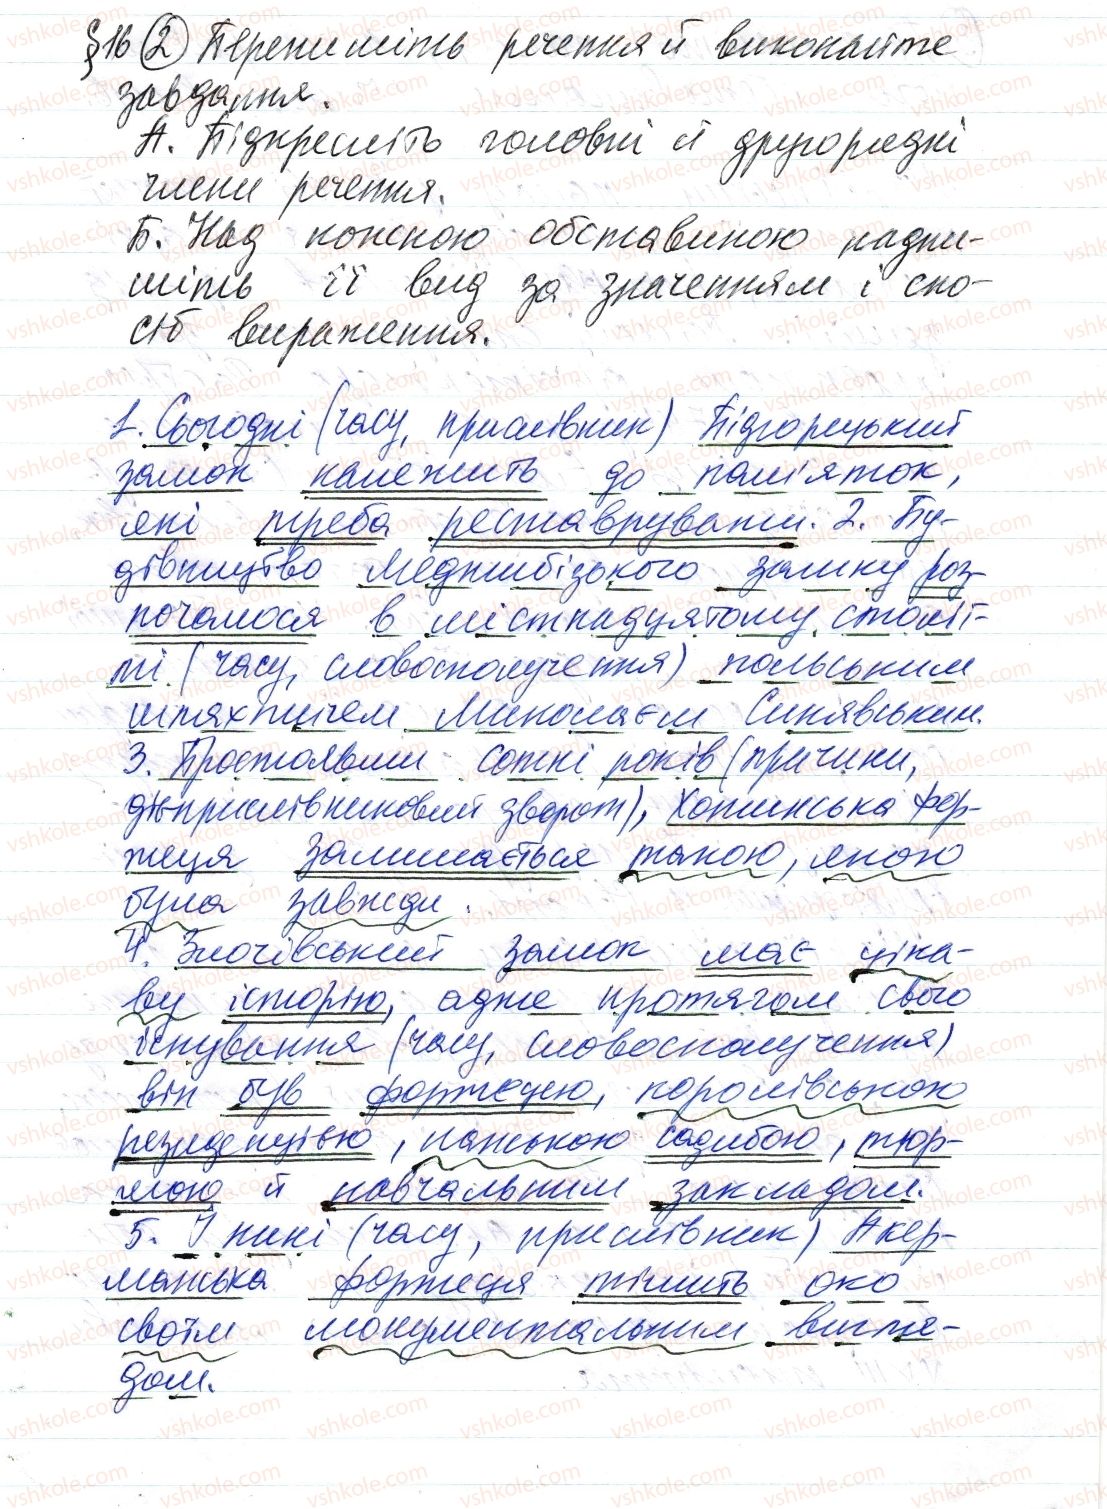 §16 (2) Перепишіть речення й виконайте
завдання.
А. Підкресліть головні й другорядні
члени речення.
Б. Над кожною обставиною надпи-
шіть її вид за значенням і спо-
сіб вираження.
1. Сьогодні (часу, прислівник) Підгорецький
замок належить до пам'яток,
які треба реставрувати. 2. Бу-
дівництво Меджибізького замку роз-
почалося в шістнадцятому століт-
ті (часу, словосполучення) польським
шляхтичем Миколаєм Синявським.
3. Простоявши сотні років (причини,
дієприслівниковий зворот), Хотинська фор-
теця залишається такою, якою
була завжди.
4. Золочівський замок має ціка-
ву історію, адже протягом свого
існування (часу, словосполучення)
він був фортецею, королівською
резиденцією, панською садибою, тюр-
мою й навчальним закладом.
5. І нині (часу, прислівник) Акер-
манська фортеця тішить око
своїм монументальним вигля-
дом.